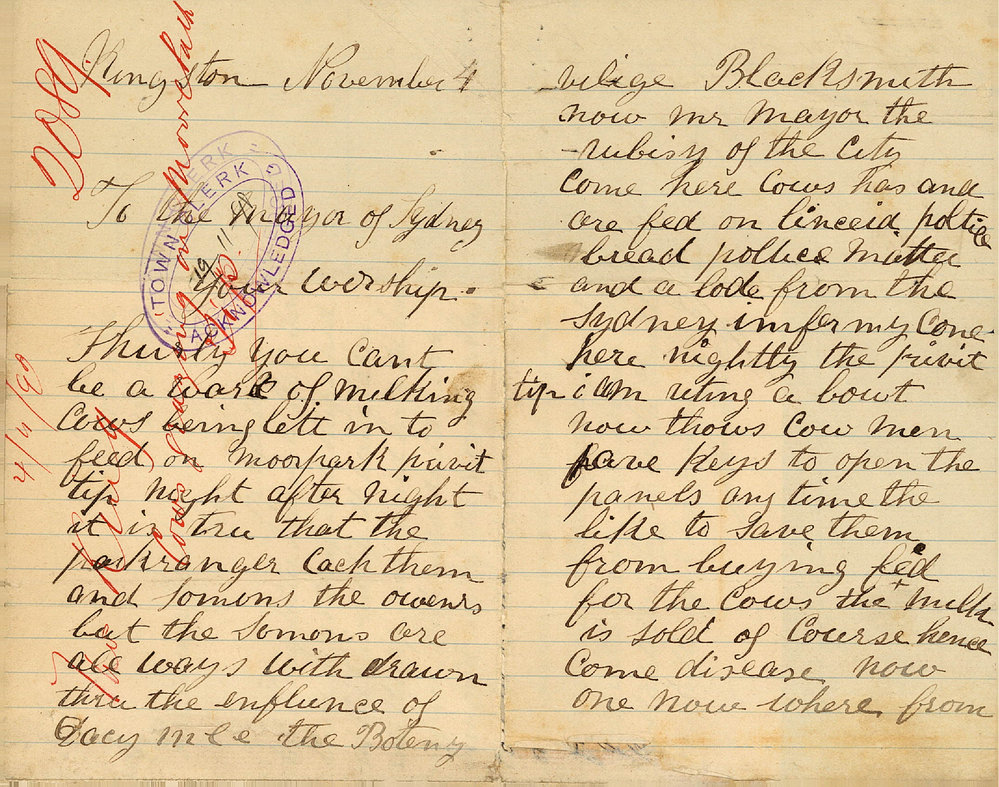 Kingston November 4
To the Mayor of Sydney
Your Worship.
you cant
be a ware of milking
Cows being lett in to
feed on moorpark privit
tip Night after Night
it is tru that the
parkranger Cach them
and Somons the owenrs
but the Somons are
all ways with drawn
thru the enflunce of
the Boteny
vilige Blacksmith
now mr Mayor the
rubisy of the City
Come here Cows has and
are fed on linceid poltice
bread poltice Matter
and a lode from the
Sydney infermy Come
here nightly the privit
tip i am riting a bowt
now thows Cow men
have Keys to open the
panels any time the
like to Save them
from buying feed
for the Cows the + milk
is Sold of Course hence
Come disease now
one now where from
TOWN CLERK
TOWN CLERK
ACKNOWLEDGED
19.11.
4/11/99
Cows on Moore Park